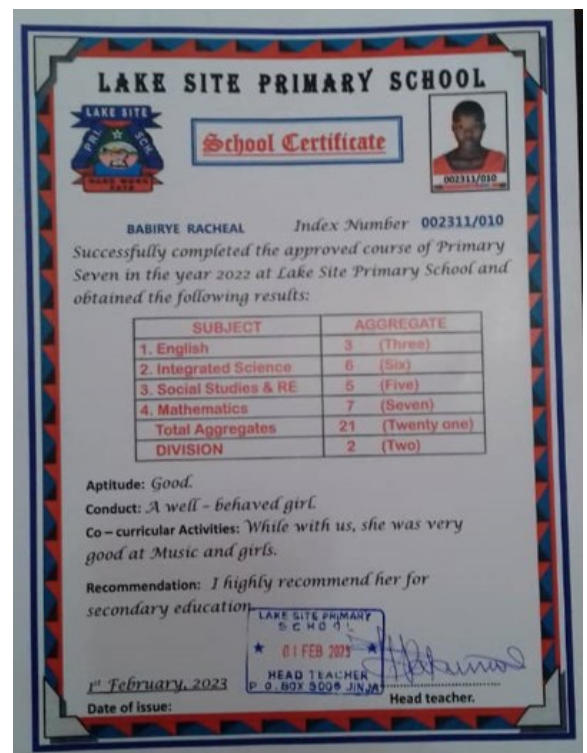 LAKE SITE PRIMARY SCHOOL
LAKE SITE
PRI SCH
HARD WORK
PAYS
School Certificate
002311/010
BABIRYE RACHEAL Index Number 002311/010
Successfully completed the approved course of Primary
Seven in the year 2022 at Lake Site Primary School and
obtained the following results:
SUBJECT AGGREGATE
1. English 3 (Three)
2. Integrated Science 6 (Six)
3. Social Studies & RE 5 (Five)
4. Mathematics 7 (Seven)
Total Aggregates 21 (Twenty one)
DIVISION 2 (Two)
Aptitude: Good.
Conduct: A well - behaved girl.
Co – curricular Activities: While with us, she was very
good at Music and girls.
Recommendation: I highly recommend her for
secondary education
LAKE SITE PRIMARY
SCHOOL
01 FEB 2023
HEAD TEACHER
P.O.BOX 5006 JINJA
1st February, 2023
Date of issue:
Head teacher.